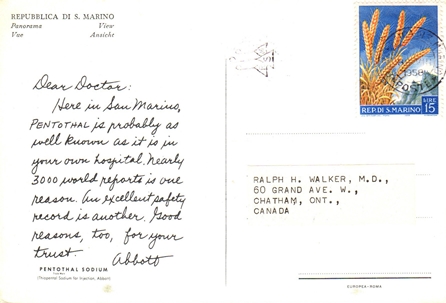 REPUBBLICA DI S. MARINO
Panorama View
Vue Ansicht
Dear Doctor:
Here in San Marino,
PENTOTHAL is probably as
well known as it is in
your own hospital. Nearly
3000 world reports is one
reason. An excellent safety
record is another. Good
reasons, too, for your
trust.
Abbott
PENTOTHAL SODIUM
(Thiopental Sodium for Injection, Abbott)
1958
POSTE
LIRE
15
REP. DI S. MARINO
RALPH H. WALKER, M.D.,
60 GRAND AVE. W.,
CHATHAM, ONT.,
CANADA
EUROPEA-ROMA